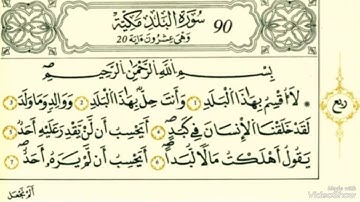 سُورَةُ الْبَلَدِ مَكِّيَّةٌ 90
وَهِيَ عِشْرُونَ ءَايَةً 20
بِسْمِ اللَّهِ الرَّحْمَٰنِ الرَّحِيمِ
لَا أُقْسِمُ بِهَٰذَا الْبَلَدِ 1 وَأَنتَ حِلٌّ بِهَٰذَا الْبَلَدِ 2 وَوَالِدٍ وَمَا وَلَدَ 3
ربع
لَقَدْ خَلَقْنَا الْإِنسَانَ فِي كَبَدٍ 4 أَيَحْسِبُ أَن لَّن يَقْدِرَ عَلَيْهِ أَحَدٌ 5
يَقُولُ أَهْلَكْتُ مَالًا لُّبَدًا 6 أَيَحْسِبُ أَن لَّمْ يَرَهُ أَحَدٌ 7
أَلَمْ نَجْعَل
Made with
VideoShow